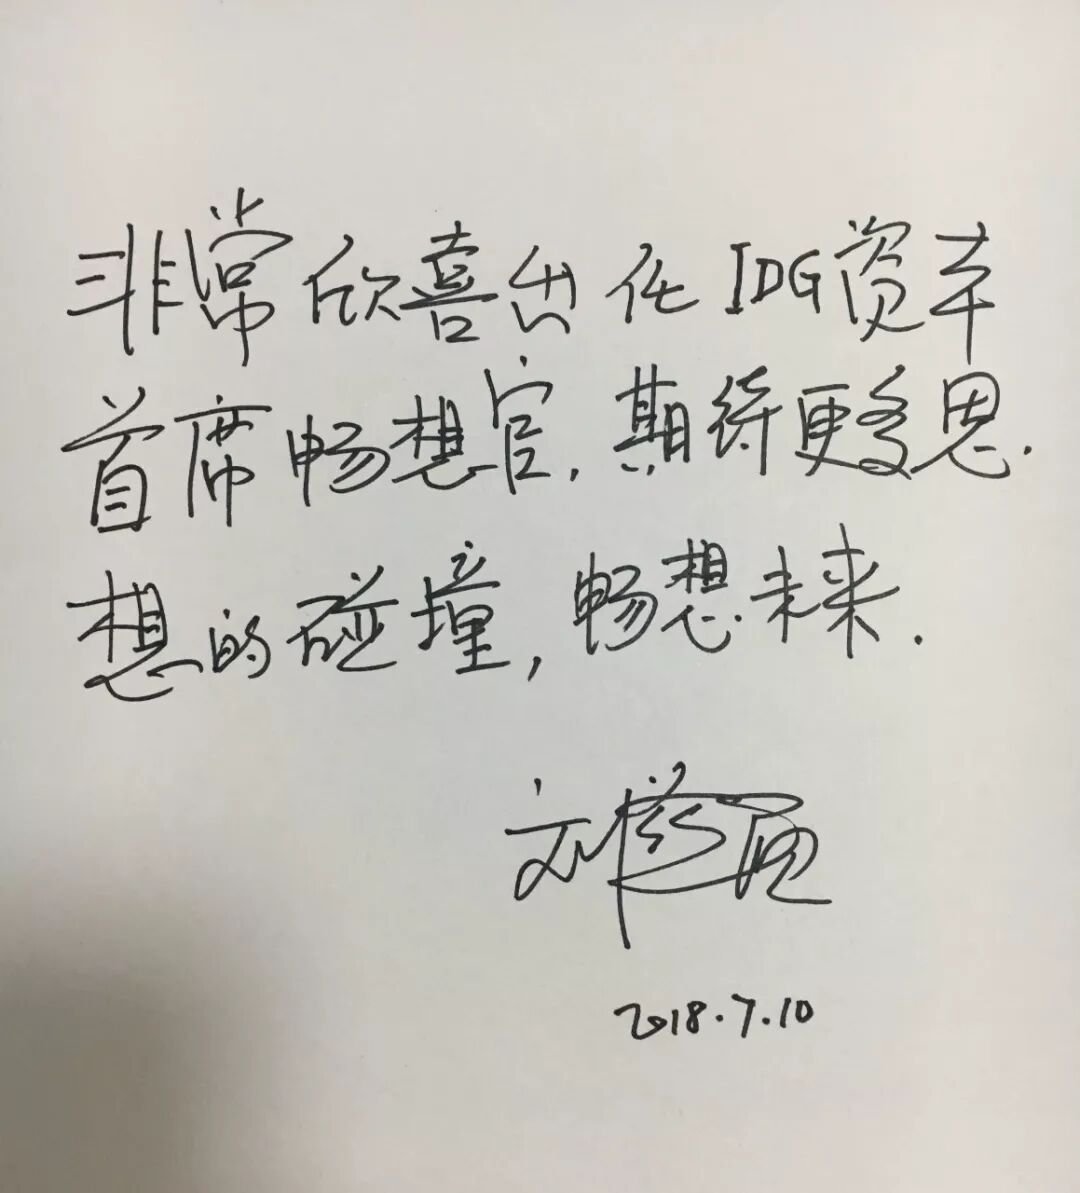 非常欣喜出任IDG资本
首席畅想官,期待更多思
想的碰撞,畅想未来.
刘慈欣
2018.7.10